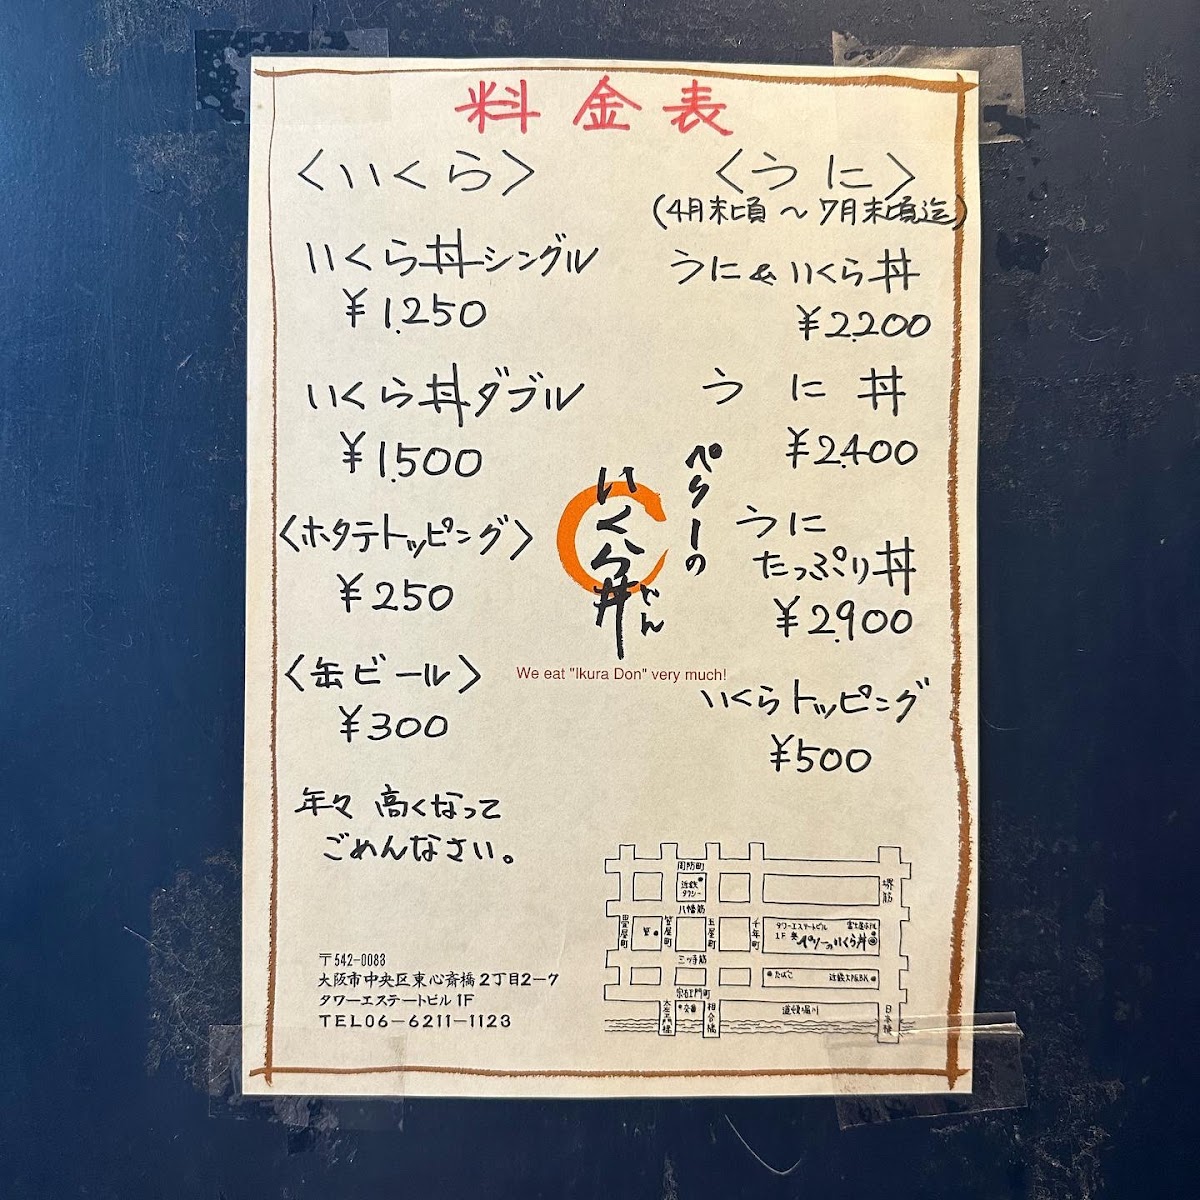 料金表
〈いくら〉
いくら丼シングル
¥1,250
いくら丼ダブル
¥1,500
〈ホタテトッピング〉
¥250
〈缶ビール〉
¥300
年々 高くなって
ごめんなさい。
〈うに〉
(4月末頃 〜 7月末頃迄)
うに&いくら丼
¥2,200
うに丼
¥2,400
うに
たっぷり丼
¥2,900
いくらトッピング
¥500
ペリーの
いくら丼
どん
We eat "Ikura Don" very much!
〒542-0083
大阪市中央区東心斎橋2丁目2-7
タワーエステートビル1F
TEL06-6211-1123
周防町
近鉄
タクシー
八幡筋
堺筋
畳屋町
笠屋町
玉屋町
千年町
タワーエステートビル
1F 奥
いくら丼
三ツ寺筋
たばこ
宗右エ門町
太左エ門橋
相合橋
道頓堀川
日本橋